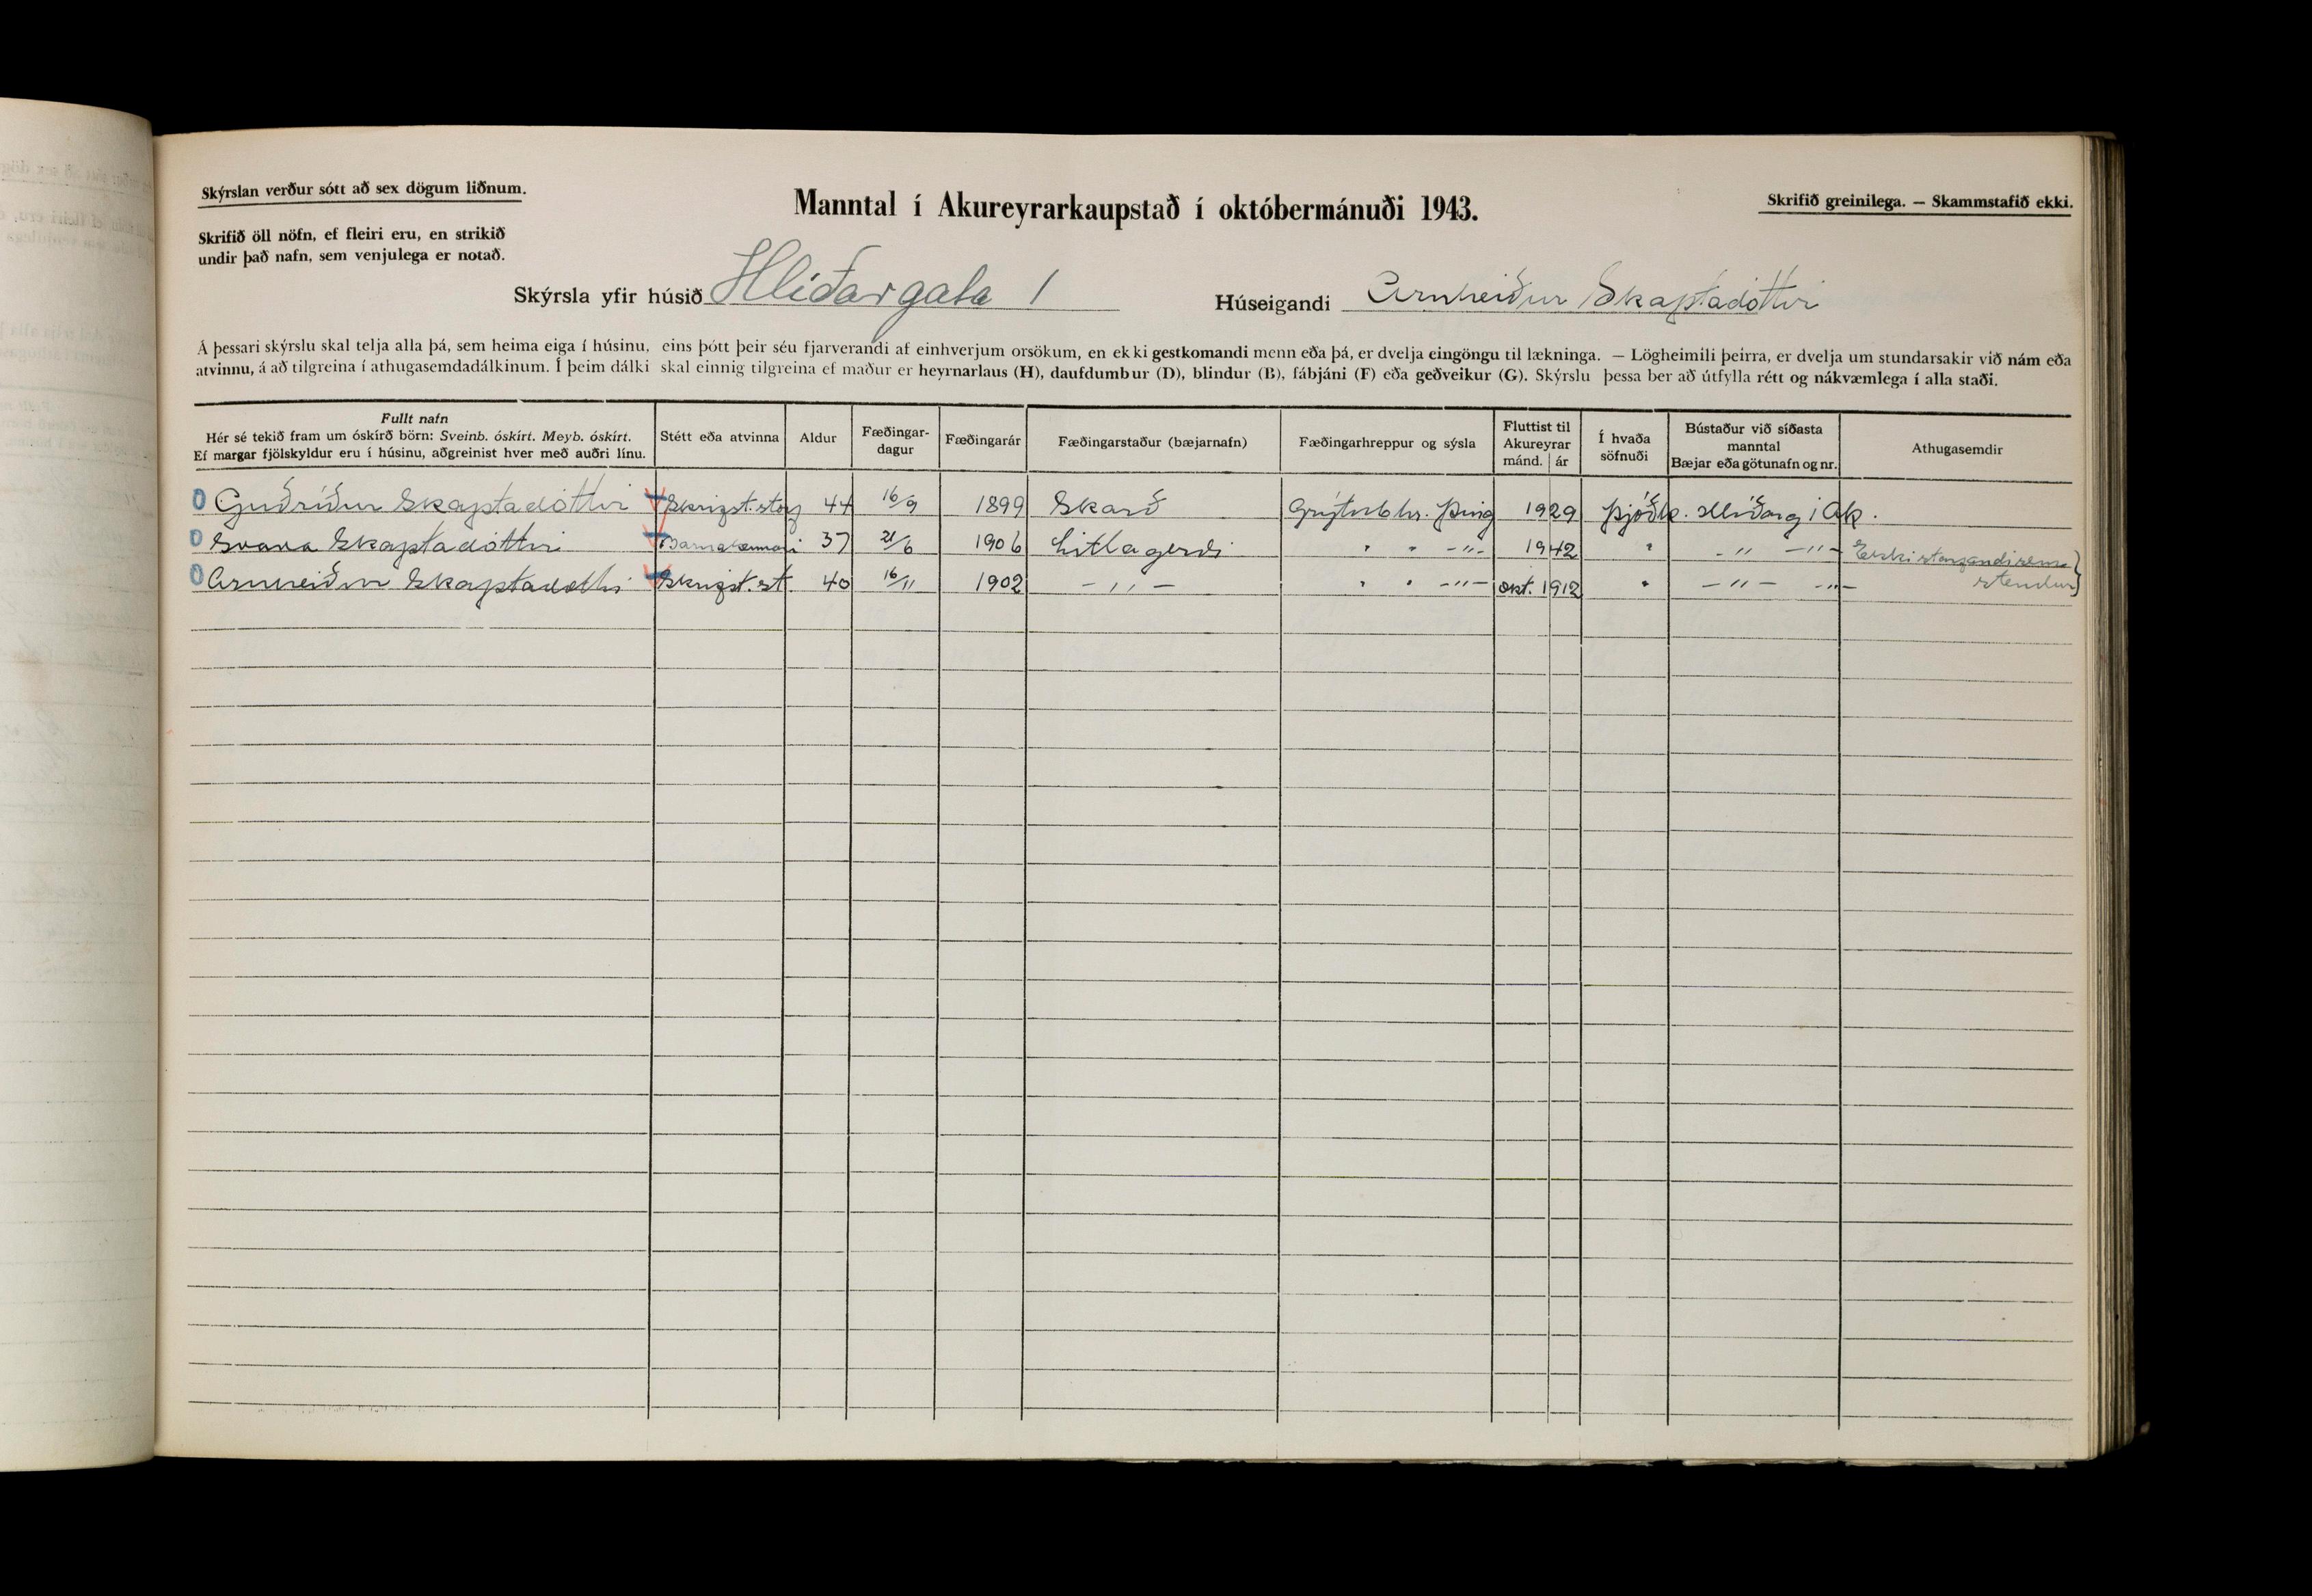 Skýrslan verður sótt að sex dögum liðnum.
Skrifið öll nöfn, ef fleiri eru, en strikið
undir það nafn, sem venjulega er notað.
Manntal í Akureyrarkaupstað í októbermánuði 1943.
Skrifið greinilega. — Skammstafið ekki.
Skýrsla yfir húsið Hlíðargata 1
Húseigandi Arnheiður Skaptadóttir
Á þessari skýrslu skal telja alla þá, sem heima eiga í húsinu, eins þótt þeir séu fjarverandi af einhverjum orsökum, en ekki gestkomandi menn eða þá, er dvelja eingöngu til lækninga. — Lögheimili þeirra, er dvelja um stundarsakir við nám eða
atvinnu, á að tilgreina í athugasemdadálkinum. Í þeim dálki skal einnig tilgreina ef maður er heyrnarlaus (H), daufdumbur (D), blindur (B), fábjáni (F) eða geðveikur (G). Skýrslu þessa ber að útfylla rétt og nákvæmlega í alla staði.
Fullt nafn
Hér sé tekið fram um óskírð börn: Sveinb. óskírt. Meyb. óskírt.
Ef margar fjölskyldur eru í húsinu, aðgreinist hver með auðri línu.
Stétt eða atvinna
Aldur
Fæðingar-
dagur
Fæðingarár
Fæðingarstaður (bæjarnafn)
Fæðingarhreppur og sýsla
Fluttist til
Akureyrar
mánd. ár
Í hvaða
söfnuði
Bústaður við síðasta
manntal
Bæjar eða götunafn og nr.
Athugasemdir
Guðríður Skaptadóttir Skrifst.störf 44 16/9 1899 Skarð Grýtubhr. Þing 1929 Þjóðk. Hlíðarg 1 Ak.
Svava Skaptadóttir Barnakennari 37 21/6 1906 Litlagerði " " -"- 1942 " -"- -"- Ekki
Arnheiður Skaptadóttir Skrifst.st. 40 16/11 1902 -"- " " -"- okt. 1912 " -"- -"- stendur